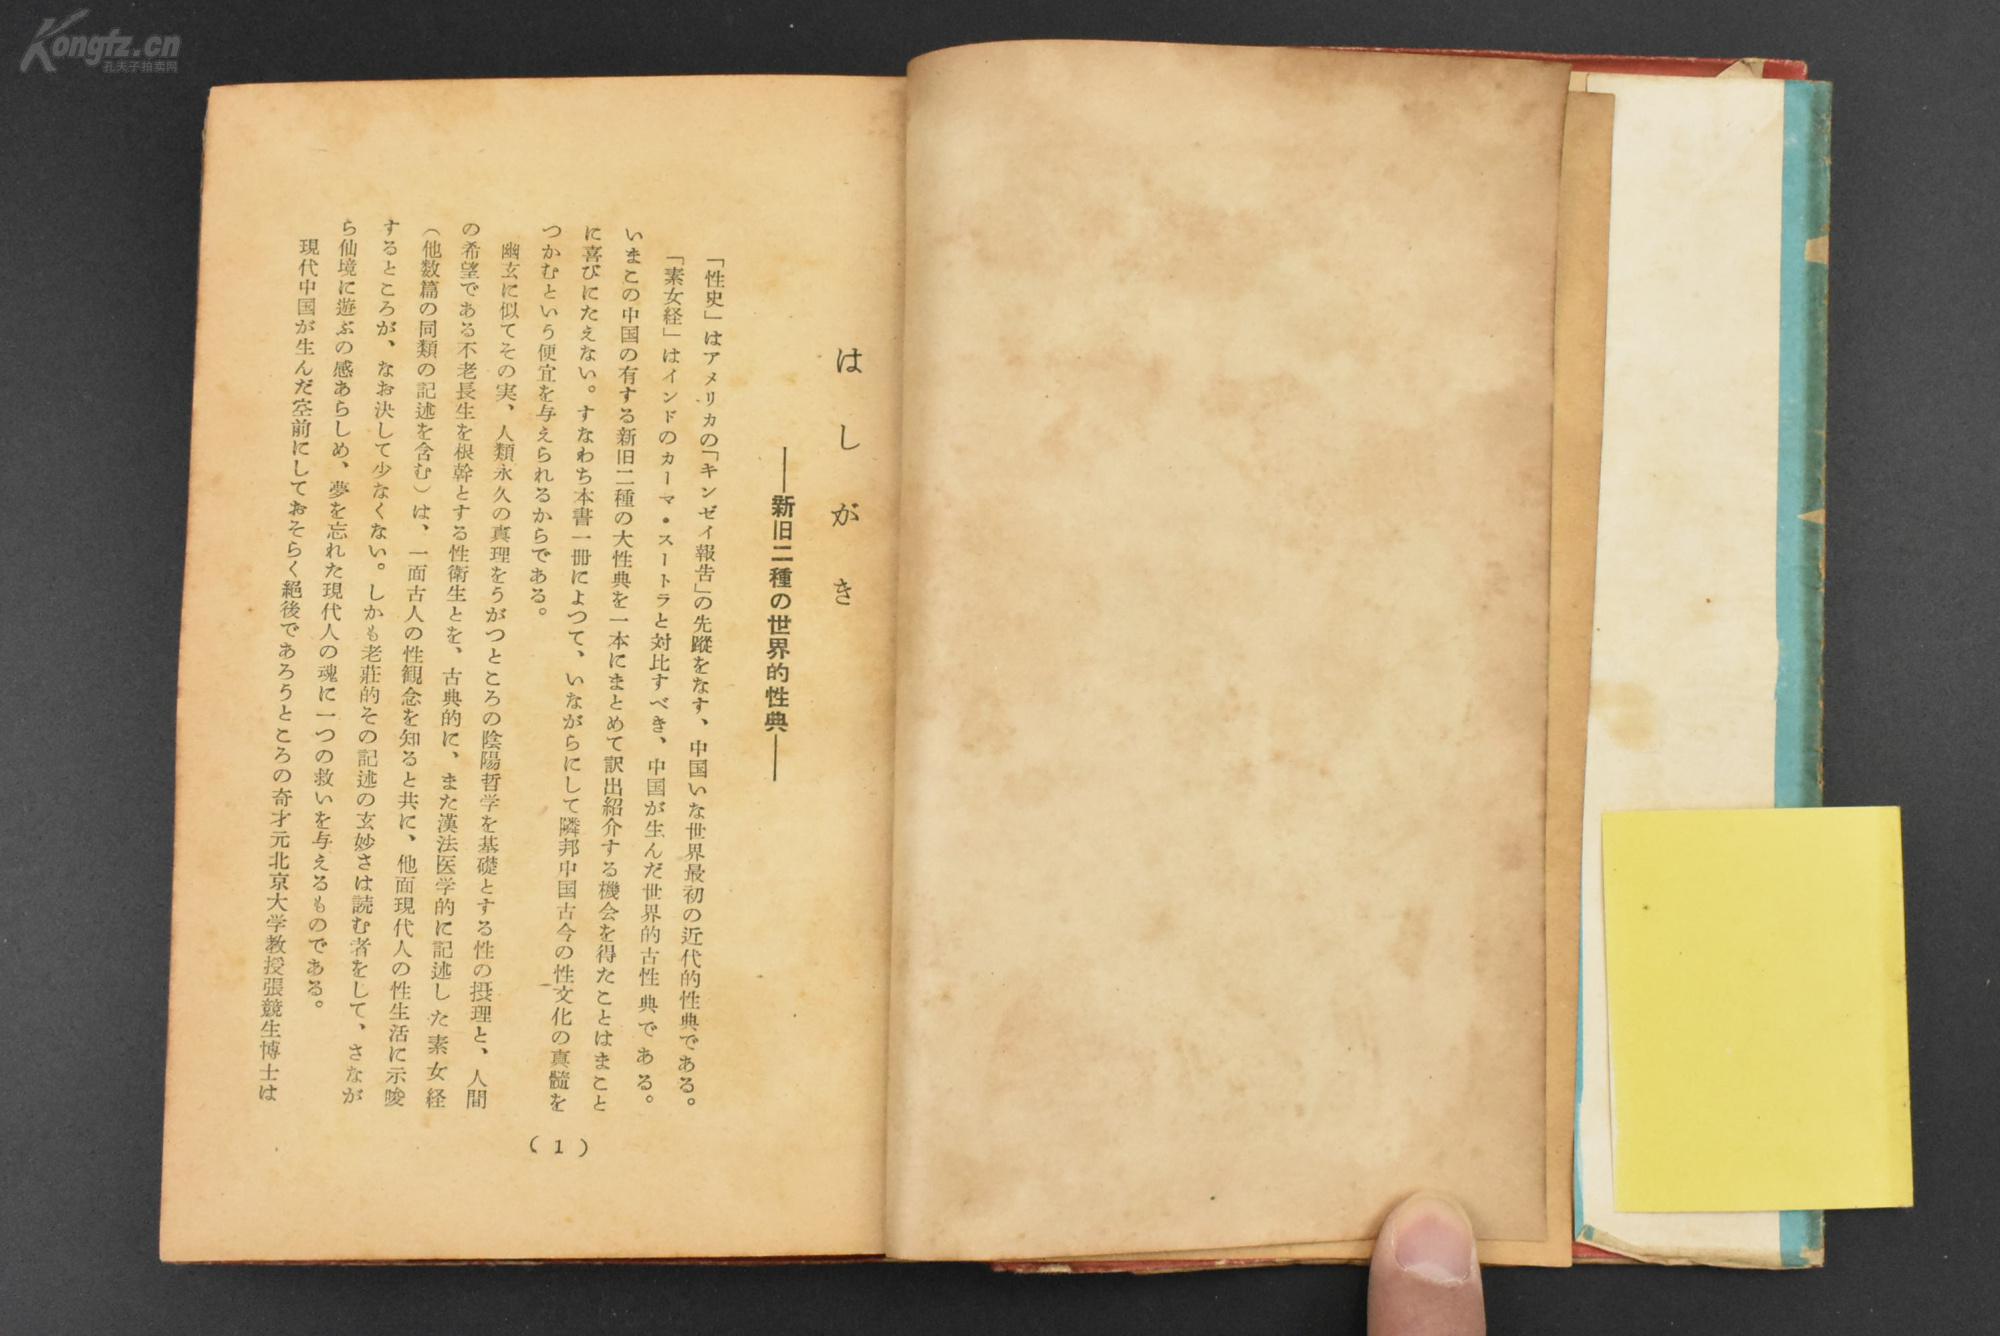 Kongfz.cn
孔夫子拍卖网
はしがき
――新旧二種の世界的性典――
「性史」はアメリカの「キンゼイ報告」の先蹤をなす、中国いな世界最初の近代的性典である。
「素女経」はインドのカーマ・スートラと対比すべき、中国が生んだ世界的古性典である。
いまこの中国の有する新旧二種の大性典を一本にまとめて訳出紹介する機会を得たことはまこと
に喜びにたえない。すなわち本書一冊によつて、いながらにして隣邦中国古今の性文化の真髄を
つかむという便宜を与えられるからである。
幽玄に似てその実、人類永久の真理をうがつところの陰陽哲学を基礎とする性の摂理と、人間
の希望である不老長生を根幹とする性衛生とを、古典的に、また漢法医学的に記述した素女経
（他数篇の同類の記述を含む）は、一面古人の性観念を知ると共に、他面現代人の性生活に示唆
するところが、なお決して少なくない。しかも老荘的その記述の玄妙さは読む者をして、さなが
ら仙境に遊ぶの感あらしめ、夢を忘れた現代人の魂に一つの救いを与えるものである。
現代中国が生んだ空前にしておそらく絶後であろうところの奇才元北京大学教授張競生博士は
(1)